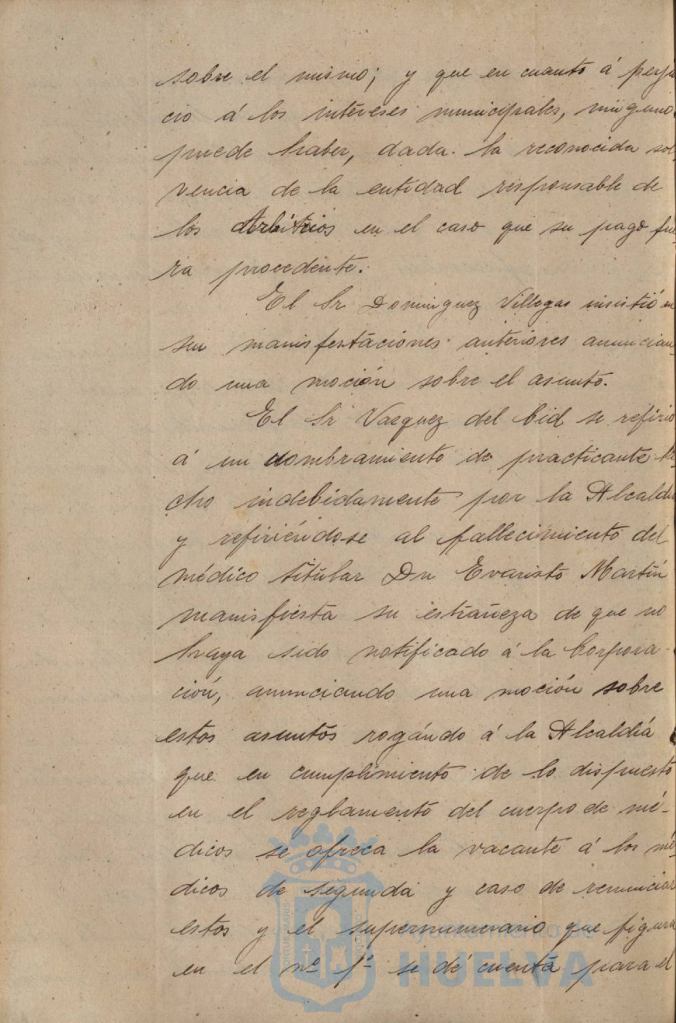 sobre el mismo; y que en cuanto á perjui
cio á los intereses municipales, ninguno
puede haber, dada la reconocida sol
vencia de la entidad responsable de
los Arbitrios en el caso que su pago fue
ra procedente.
El Sr Dominguez Villegas insistió en
sus manifestaciones anteriores anuncian-
do una moción sobre el asunto.
El Sr Vazquez del Cid se refirio
á un nombramiento de practicante he
cho indebidamente por la Alcaldia
y refiriéndose al fallecimiento del
médico titular Dn Evaristo Martín
manifiesta su estrañeza de que no
haya sido notificado á la Corpora-
ción, anunciando una moción sobre
estos asuntos rogando á la Alcaldiá
que en cumplimiento de lo dispuesto
en el reglamento del cuerpo de mé-
dicos se ofreca la vacante á los mé
dicos de segunda y caso de renunciar
estos y el supernumerario que figura
en el nº 1º se dé cuenta para el
Ayuntamiento de
HUELVA